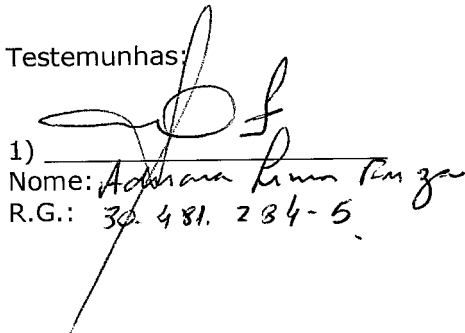 Testemunhas:
1)
Nome: Adriana Lima
R.G.: 30.481.284-5